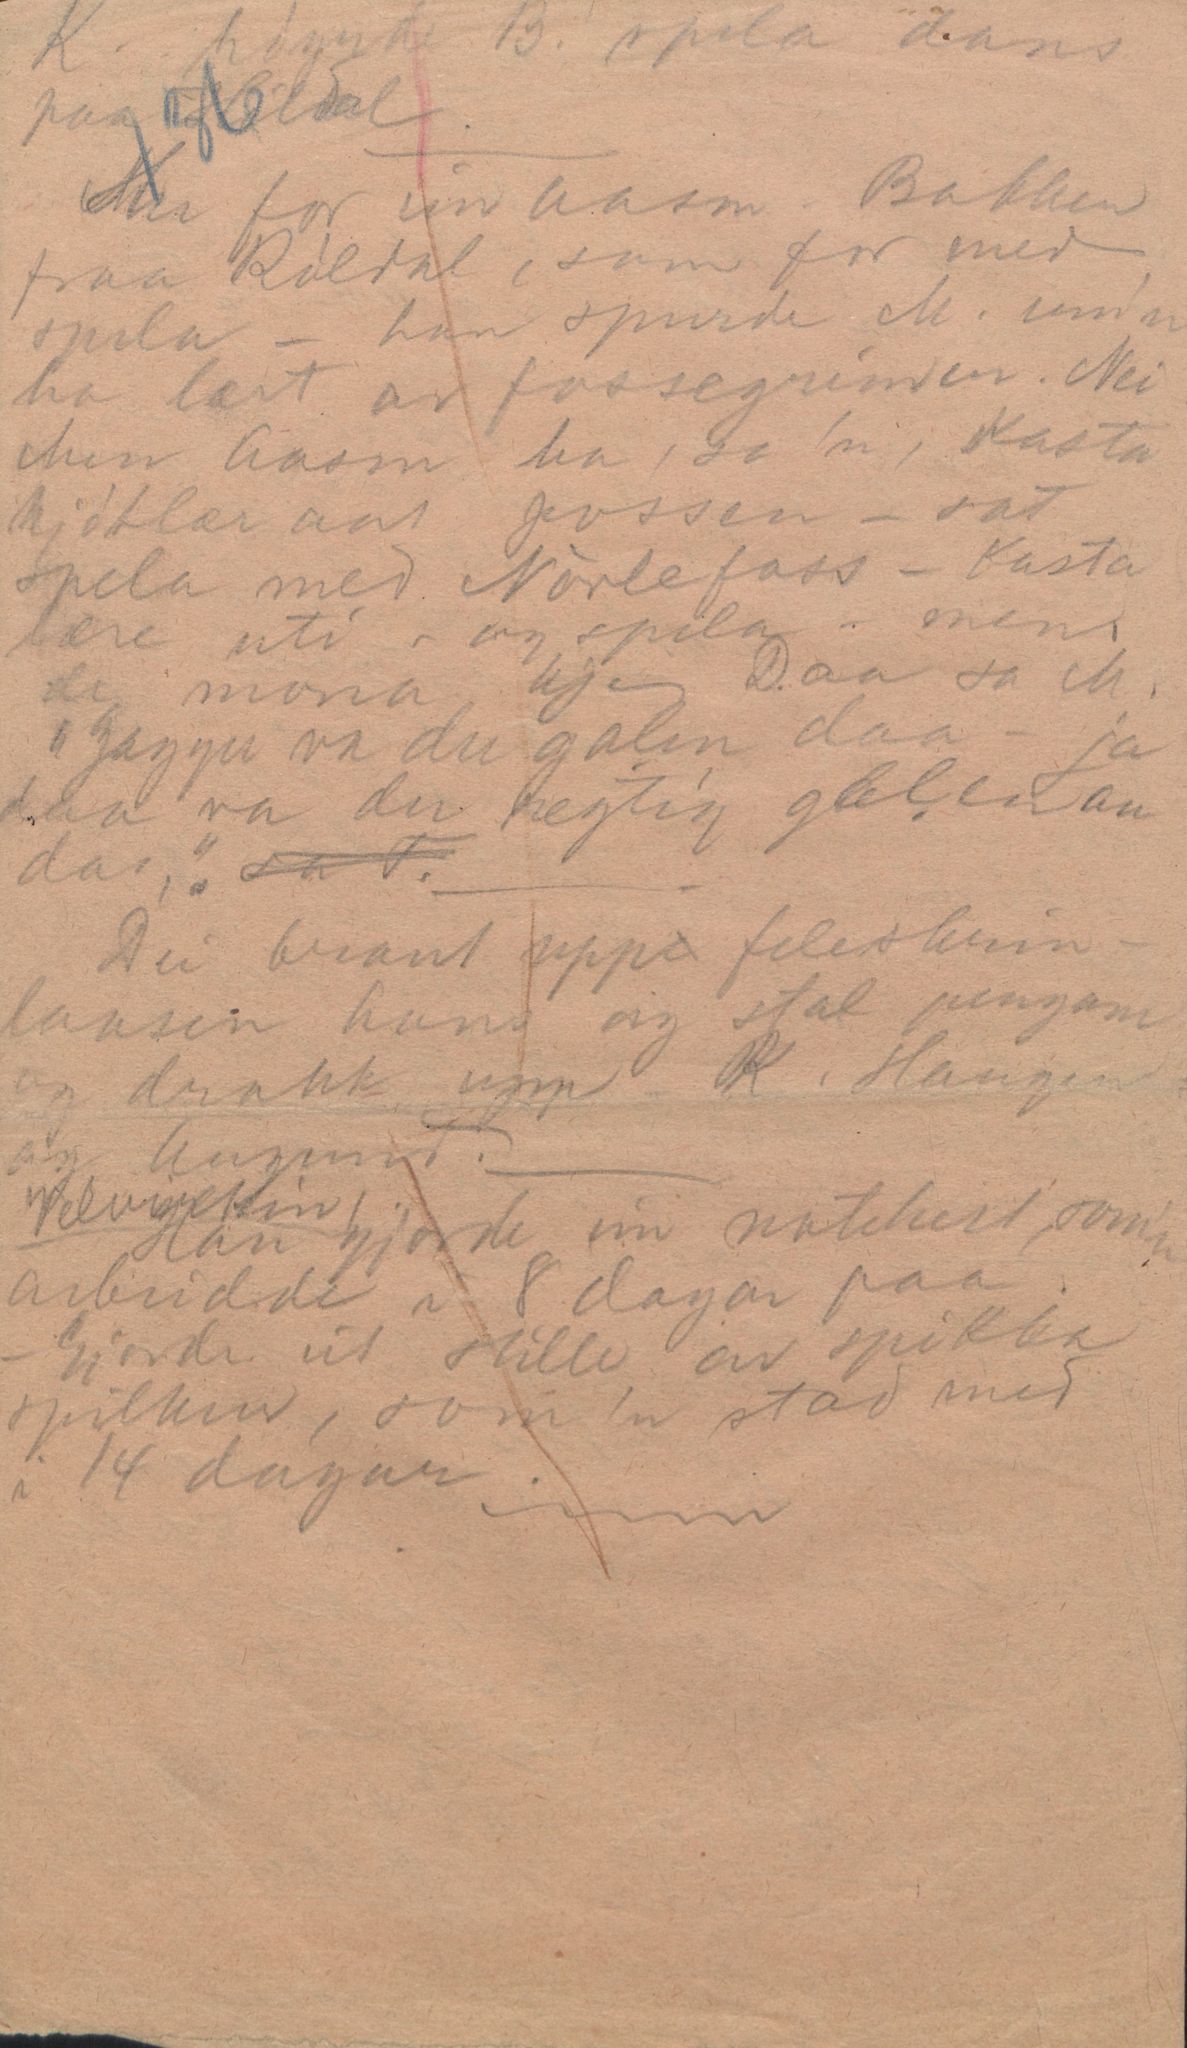 K. høyrde B. spela dans
paa Røldal.
for ein Aasm. Bakken
fraa Røldal, som for med
spela – han spurde M. um'n
ha lært av fossegrimen. Nei
Men Aasm ha, sa 'n, Kasta
kjøtlær aat fossen – sat
spela med Nørlefoss – Kasta
lære uti – og spela – men
de mona kje Daa sa M.
va du galen daa – ja
daa va du regtig galen au
daa."
Dei braut uppe feleskrin-
laasen hans og stal pengane
og drakk upp – K. Haugen
og Augund.
Han gjorde ein notehest, som'n
arbeidde i 8 dagar paa
– Gjorde eit stille av spikka
spilkur, som 'n stod med
i 14 dagar.